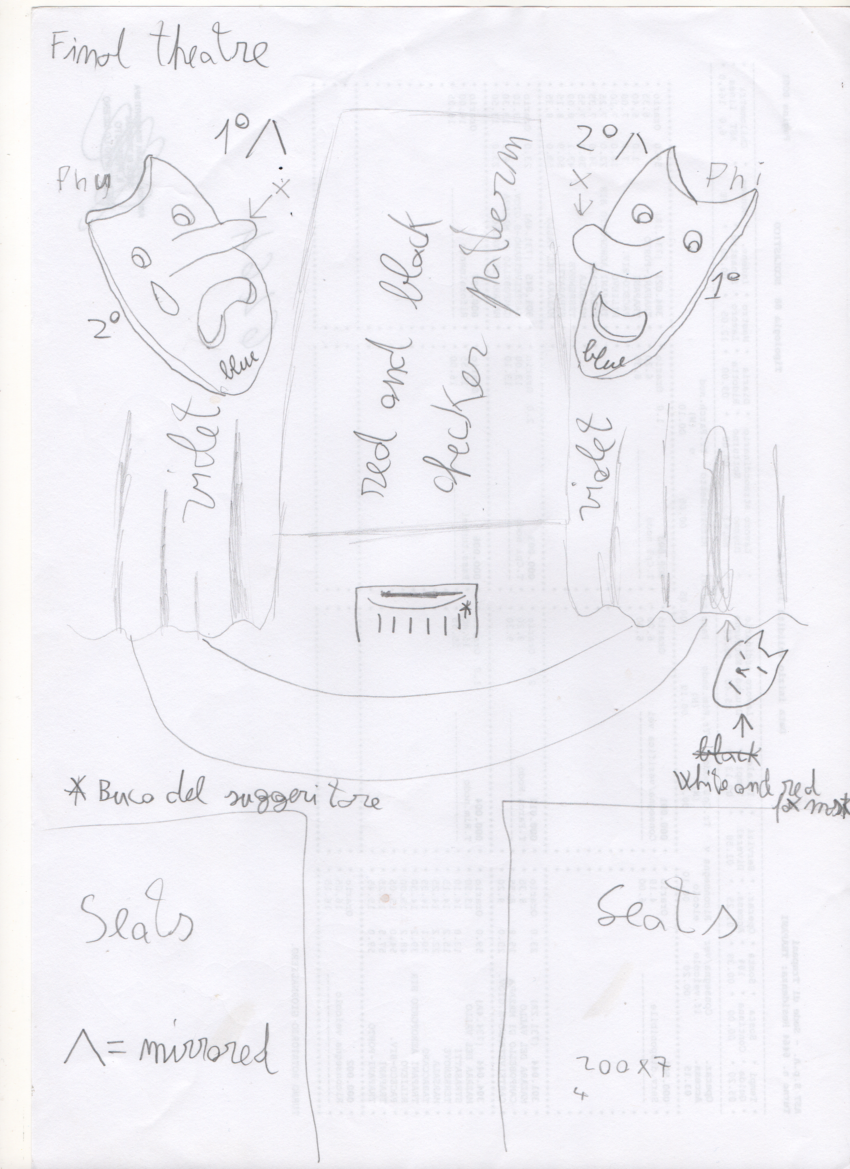 Final theatre
1° Λ
2° Λ
Phy
Phi
x
x
2°
1°
blue
blue
red and black
checker pattern
violet
violet
*
black
White and red
fox mask
* Buco del suggeritore
Seats
Seats
Λ = mirrored
200x7
4